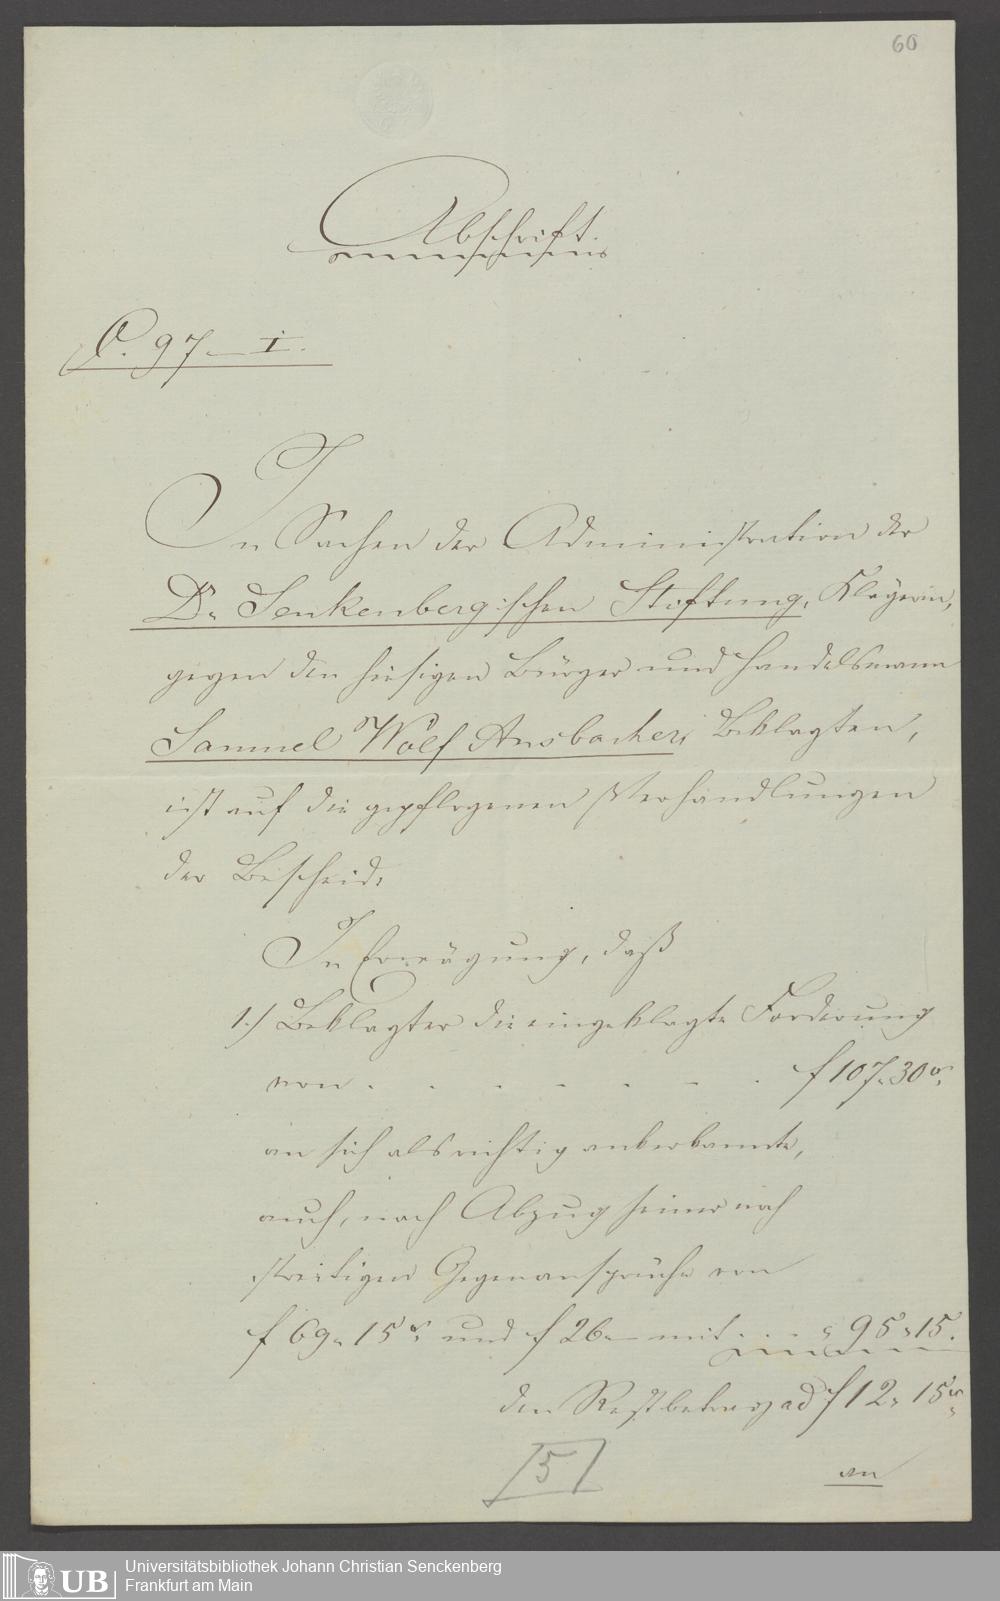 60
Abschrift.
C. 97 – I.
In Sachen der Administration der
Dr. Senkenberg'schen Stiftung, Klägerin,
gegen den hiesigen Bürger und Handelsmann
Samuel Wolf Ansbacher, Beklagten,
ist auf die gepflogenen Verhandlungen
der Bescheid:
In Erwägung, daß
1.) Beklagter die eingeklagte Forderung
von . . . . . . . f 107. 30 xr.
an sich als richtig anerkannte,
auch, nach Abzug seiner noch
streitigen Gegenansprüche von
f 69. 15 xr. und f 26. – mit . . . " 95. 15.
den Restbetrag ad f 12. 15 xr.
an
5
Universitätsbibliothek Johann Christian Senckenberg
Frankfurt am Main
UB